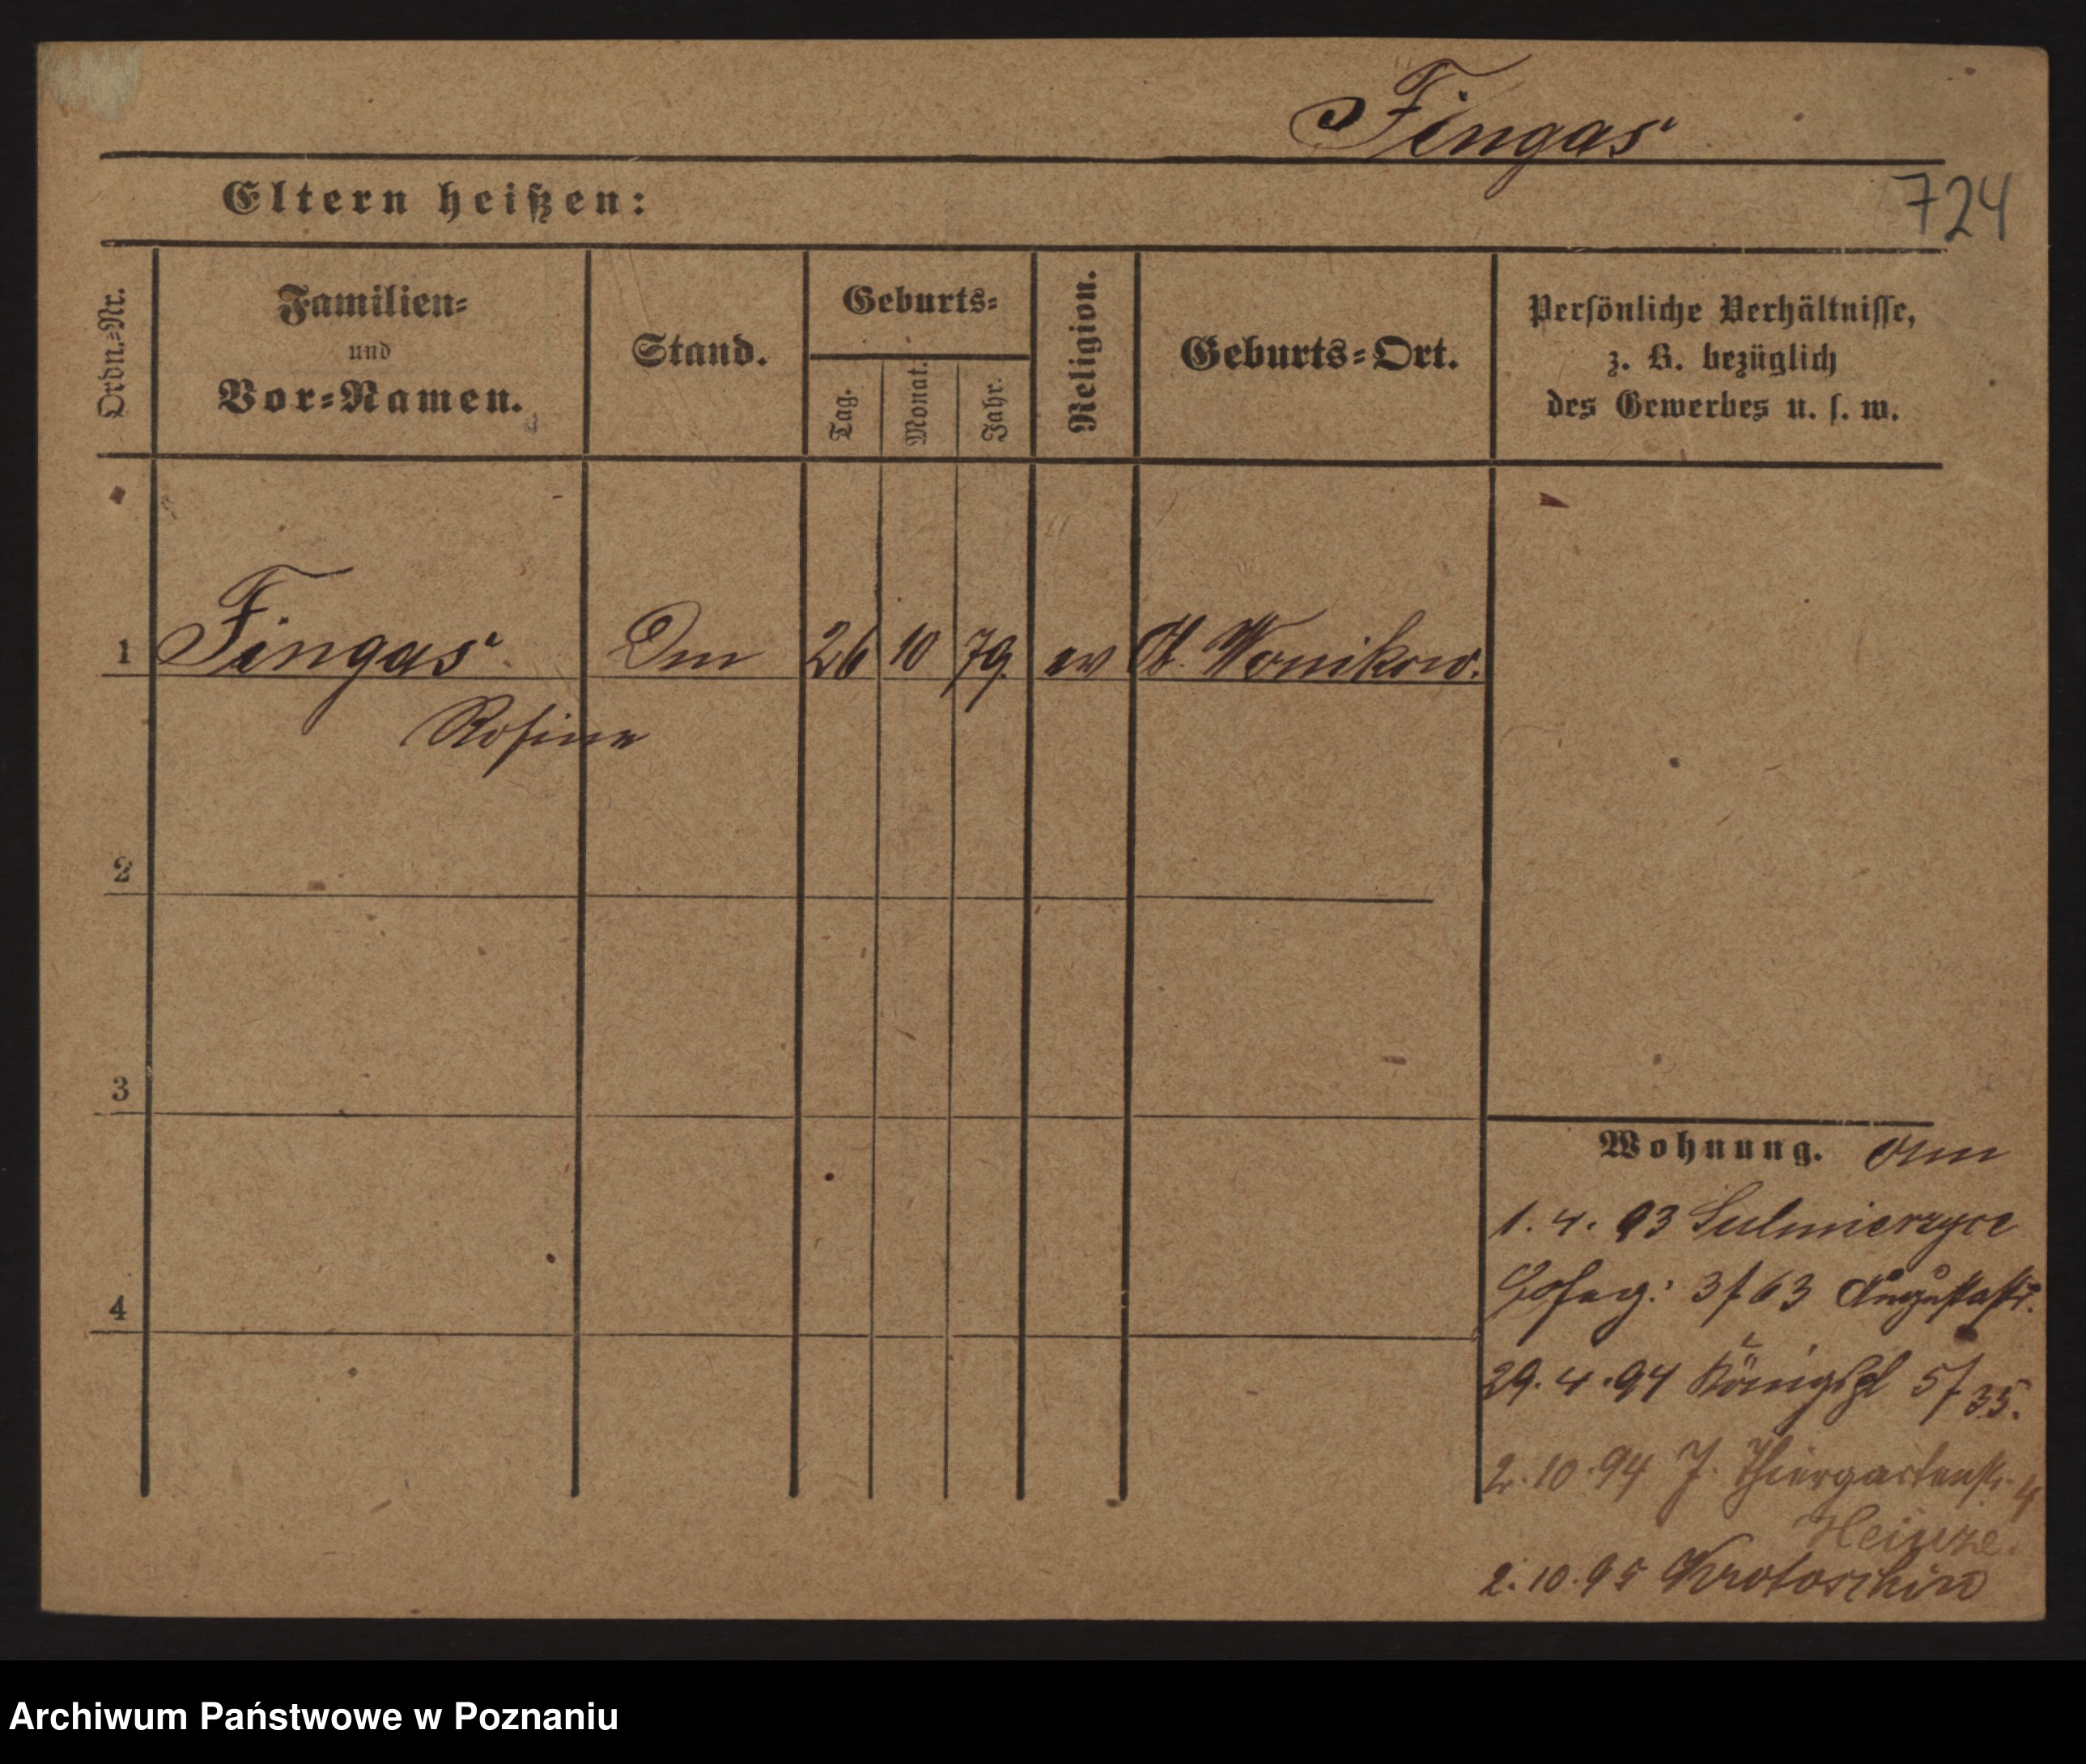 Fingas
Eltern heißen:
724
Ordn.=Nr.
Familien=
und
Vor=Namen.
Stand.
Geburts=
Tag.
Monat.
Jahr.
Religion.
Geburts=Ort.
Persönliche Verhältnisse,
z. B. bezüglich
des Gewerbes u. s. w.
1 Fingas 26 10 79. ev Wonikow.
Rosine
2
3
4
Wohnung.
1. 4. 93 Sulmierzyce
3/63 Augustastr.
29. 4. 94 Königspl 5/35.
2. 10. 94 J. Thiergartenstr. 4
Heinze.
2. 10. 95 Krotoschin
Archiwum Państwowe w Poznaniu